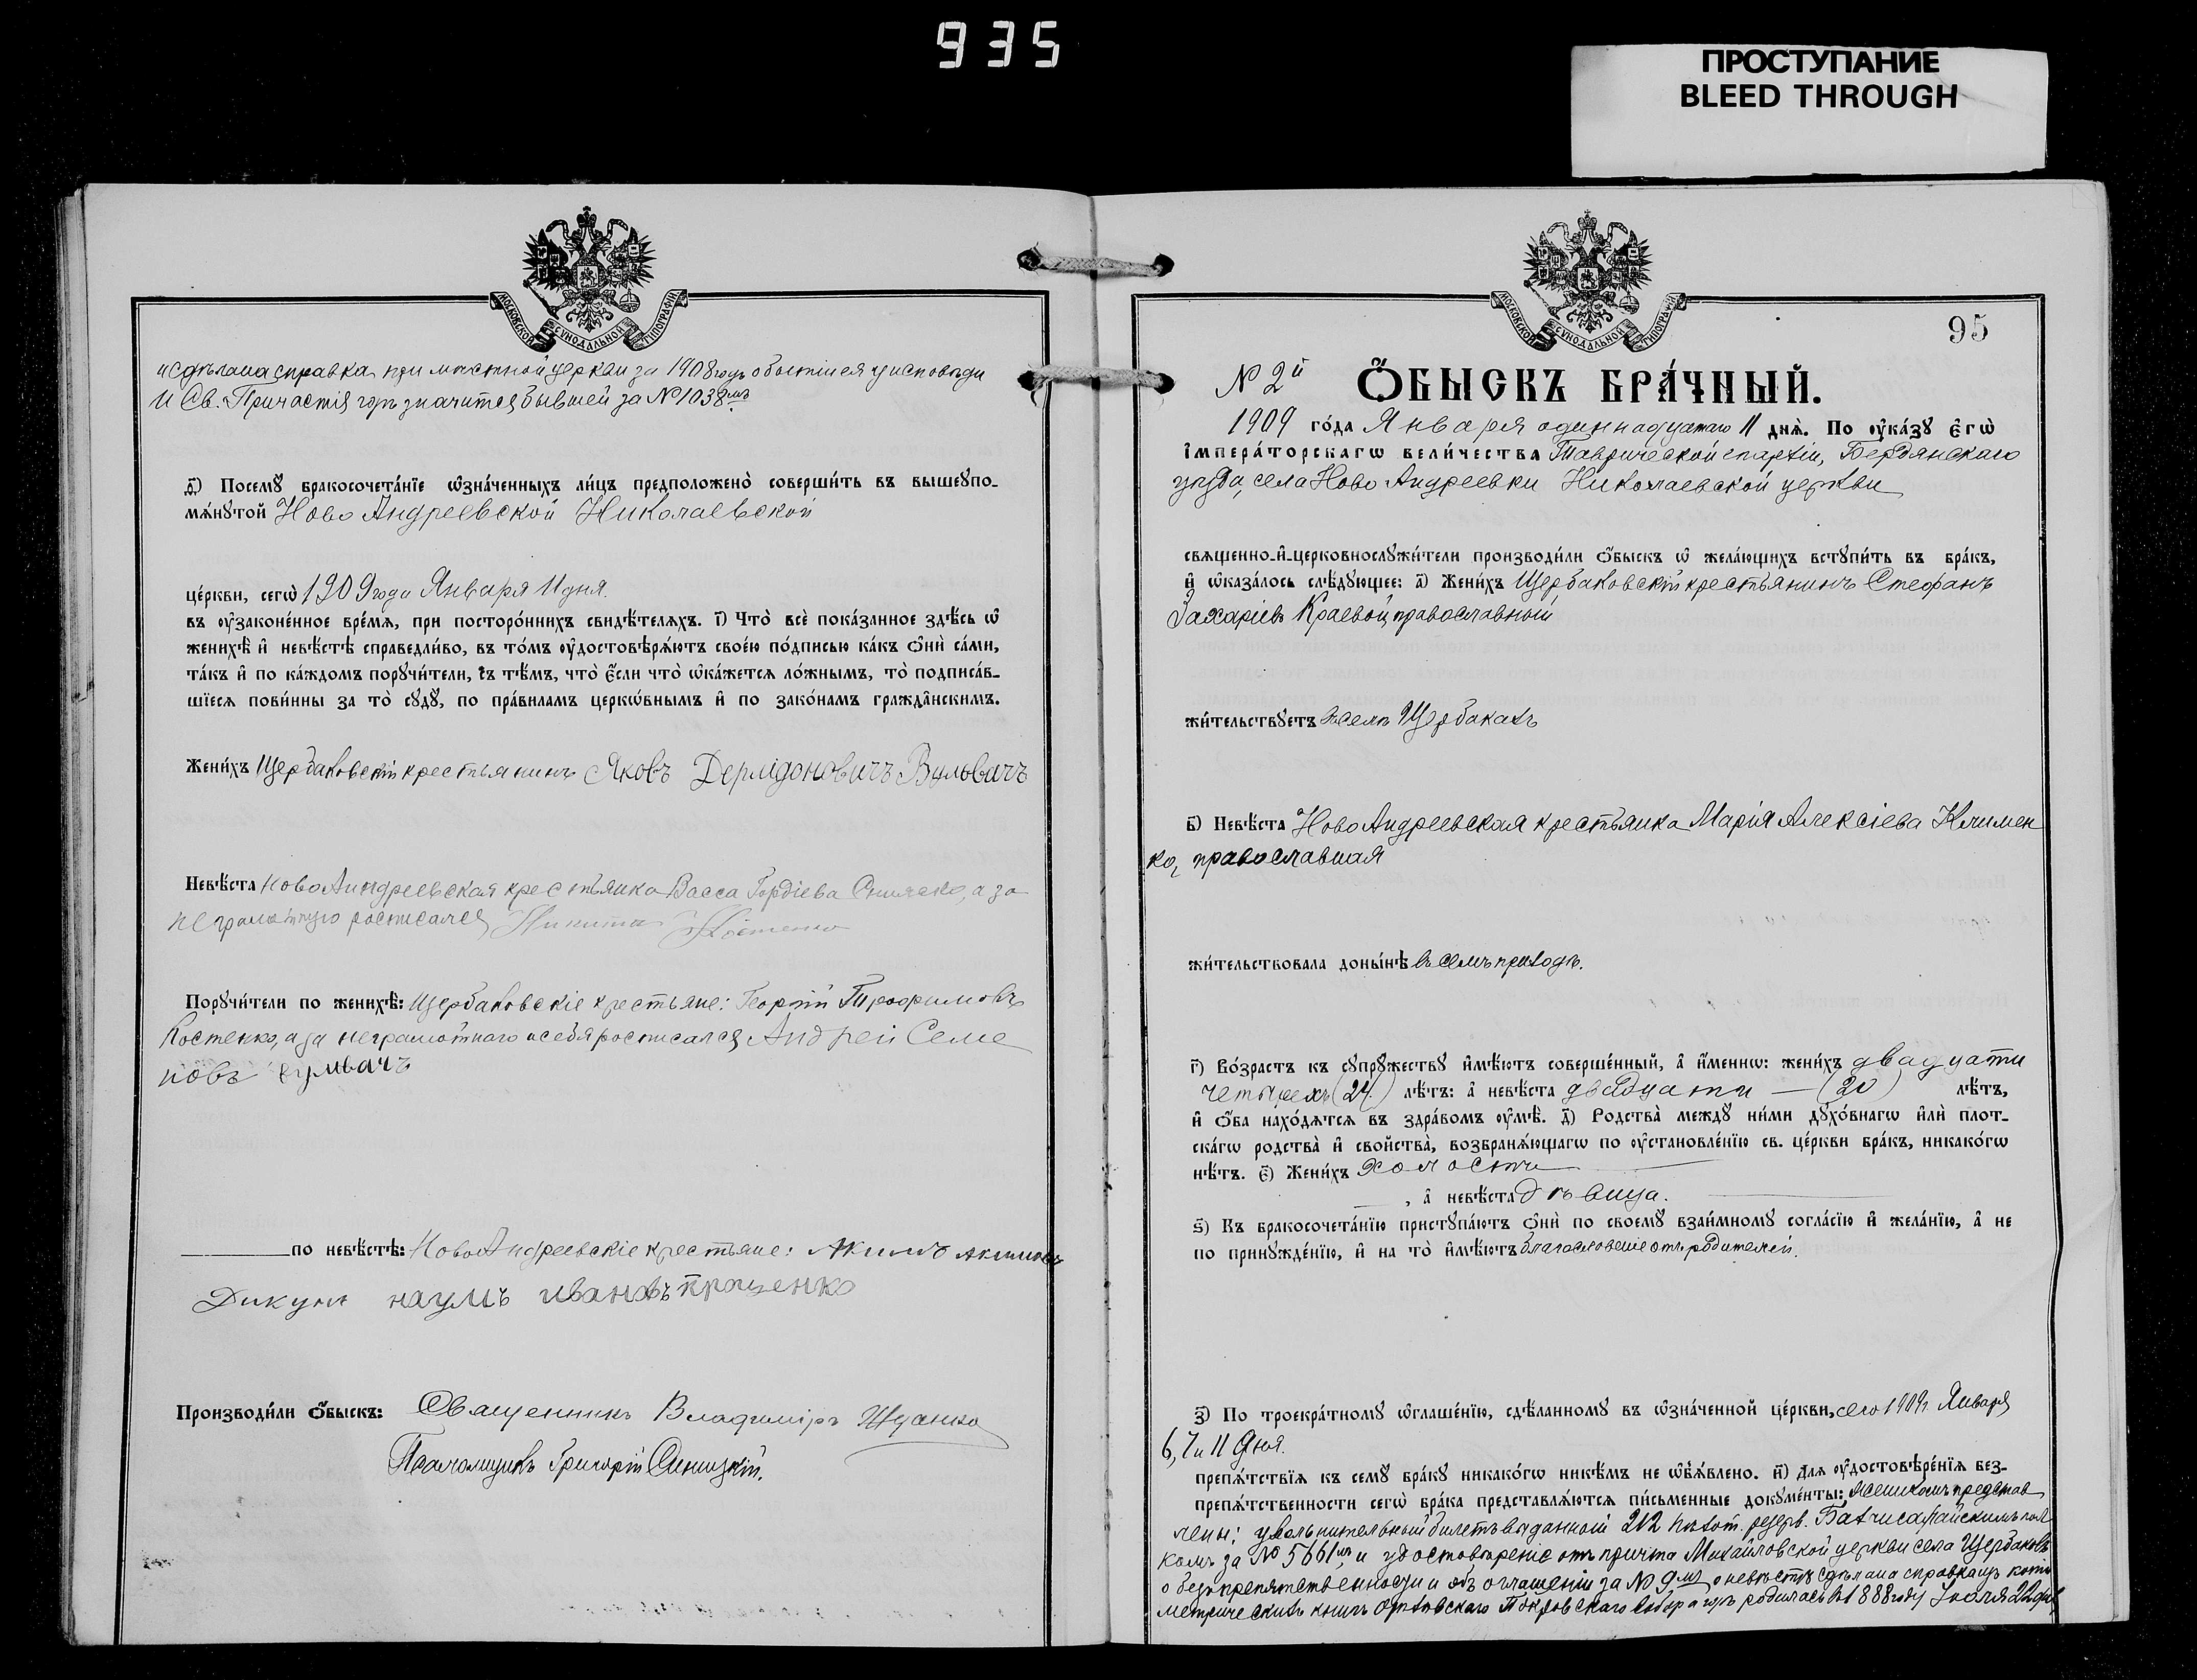 935
ПРОСТУПАНИЕ
BLEED THROUGH
МОСКОВСКОЙ СѴНОДАЛЬНОЙ ТИПОГРАФІИ
и сдѣлана справка при мѣстной церкви за 1908 годъ о бытіи ея у исповѣди
и Св. Причастія гдѣ значится бывшей за № 1038мъ
д҃) Посемꙋ̀ бракосочета́нїе ѡ҆зна́ченныхъ ли́цъ предположено̀ соверши́ть въ вышеꙋпо-
мѧ́нꙋтой Ново Андреевской Николаевской
це́ркви, сегѡ̀ 1909 года Января 11 дня.
въ ᲂу҆зако́ненное вре́мѧ, при посторо́ннихъ свидѣ́телѧхъ. і҃) Что̀ всѐ пока́занное здѣ́сь ѡ҆
женихѣ̀ и҆ невѣ́стѣ справедли́во, въ то́мъ ᲂу҆достовѣрѧ́ютъ свое́ю по́дписью ка́къ ѻ҆нѝ са́ми,
та́къ и҆ по ка́ждомъ порꙋчи́тели, съ тѣ́мъ, что̀ є҆́сли что̀ ѡ҆ка́жется ло́жнымъ, то̀ подписа́в-
шїеся пови́нны за то̀ сꙋдꙋ̀, по пра́виламъ церкѡ́внымъ и҆ по зако́намъ гражда̂нскимъ.
Жени́хъ Щербаковскій крестьянинъ Яковъ Дермідоновичъ Вульвачъ
Невѣ́ста Ново Андреевская крестьянка Васса Гордіева, а за
неграмотную росписался Никита Костенко
Порꙋчи́тели по женихѣ̀: Щербаковскіе крестьяне: Георгій Трофимовъ
Костенко, а за неграмотнаго и себя росписался Андрей Семе
новъ Вульвачъ
по невѣ́стѣ: Ново Андреевскіе крестьяне: Акимъ Акимовъ
Дикун наумъ ивановъ проценко
Производи́ли ѻ҆́быскъ: Священникъ Владиміръ Жданко
Псаломщикъ Григорій Синицкій.
МОСКОВСКОЙ СѴНОДАЛЬНОЙ ТИПОГРАФІИ
95
№ 2й Ѻ҆́БЫСКЪ БРА́ЧНЫЙ.
1909 го́да Января одиннадцатаго 11 днѧ̀. По ᲂу҆ка́зꙋ Є҆гѡ̀
і҆мпера́торскагѡ вели́чества Таврической епархіи, Бердянскаго
уѣзда, села Ново Андреевки Николаевской церкви
свѧщенно-и҆-церковнослꙋжи́тели производи́ли ѻ҆́быскъ ѡ҆ жела́ющихъ встꙋпи́ть въ бра́къ,
и҆ ѡ҆каза́лось слѣ́дꙋющее: а҃) Жени́хъ Щербаковскій крестьянинъ Стефанъ
Захаріевъ Краевой, православный
жи́тельствꙋетъ в селѣ Щербакахъ
б҃) Невѣ́ста Ново Андреевская крестьянка Марія Алексіева Климен
ко, православная
жи́тельствовала донынѣ въ семъ приходѣ.
г҃) Во́зрастъ къ сꙋпрꙋ́жествꙋ и҆мѣ́ютъ соверше́нный, а҆ и҆́меннѡ: жени́хъ двадцати
четырехъ (24) лѣ́тъ: а҆ невѣ́ста двадцати — (20) лѣ́тъ,
и҆ ѻ҆́ба нахо́дѧтся въ здра́вомъ ᲂу҆мѣ̀. д҃) Родства̀ междꙋ̀ ни́ми дꙋхо́внагѡ и҆лѝ плот-
ска́гѡ родства̀ и҆ сво́йства̀, возбранѧ́ющагѡ по ᲂу҆становле́нїю св. це́ркви бра́къ, никако́гѡ
нѣ́тъ. є҃) Жени́хъ холостъ
, а҆ невѣ́ста дѣвица.
ѕ҃) Къ бракосочета́нїю пристꙋпа́ютъ ѻ҆нѝ по своемꙋ̀ взаи́мномꙋ согла́сїю и҆ жела́нїю, а҆ не
по принꙋжде́нїю, и҆ на то̀ и҆мѣ́ютъ благословеніе отъ родителей.
з҃) По троекра́тномꙋ ѡ҆глаше́нїю, сдѣ́ланномꙋ въ ѡ҆зна́ченной це́ркви, сего 1909 г. Января
6, 7 и 11 дня.
препѧ́тствїѧ къ семꙋ̀ бра́кꙋ никако́гѡ никѣ́мъ не ѡ҆б̾ѧ́влено. и҃) Для ᲂу҆достовѣре́нїѧ без-
препѧ́тственности сегѡ̀ бра́ка представлѧ́ются пи́сьменные докꙋме́нты: женихомъ представ
лены: увольнительный билетъ выданной 212 пѣхот. резерв. Бахчисарайскимъ пол
комъ за № 5661мъ и удостовѣреніе отъ причта Михайловской церкви села Щербаковъ
о безпрепятственности и объ оглашеніи за № 9мъ, о невѣстѣ сдѣлана справка изъ копій
метрическихъ книгъ Орѣховскаго Покровскаго Собора гдѣ родилась въ 1888 году Іюля 22 дня,